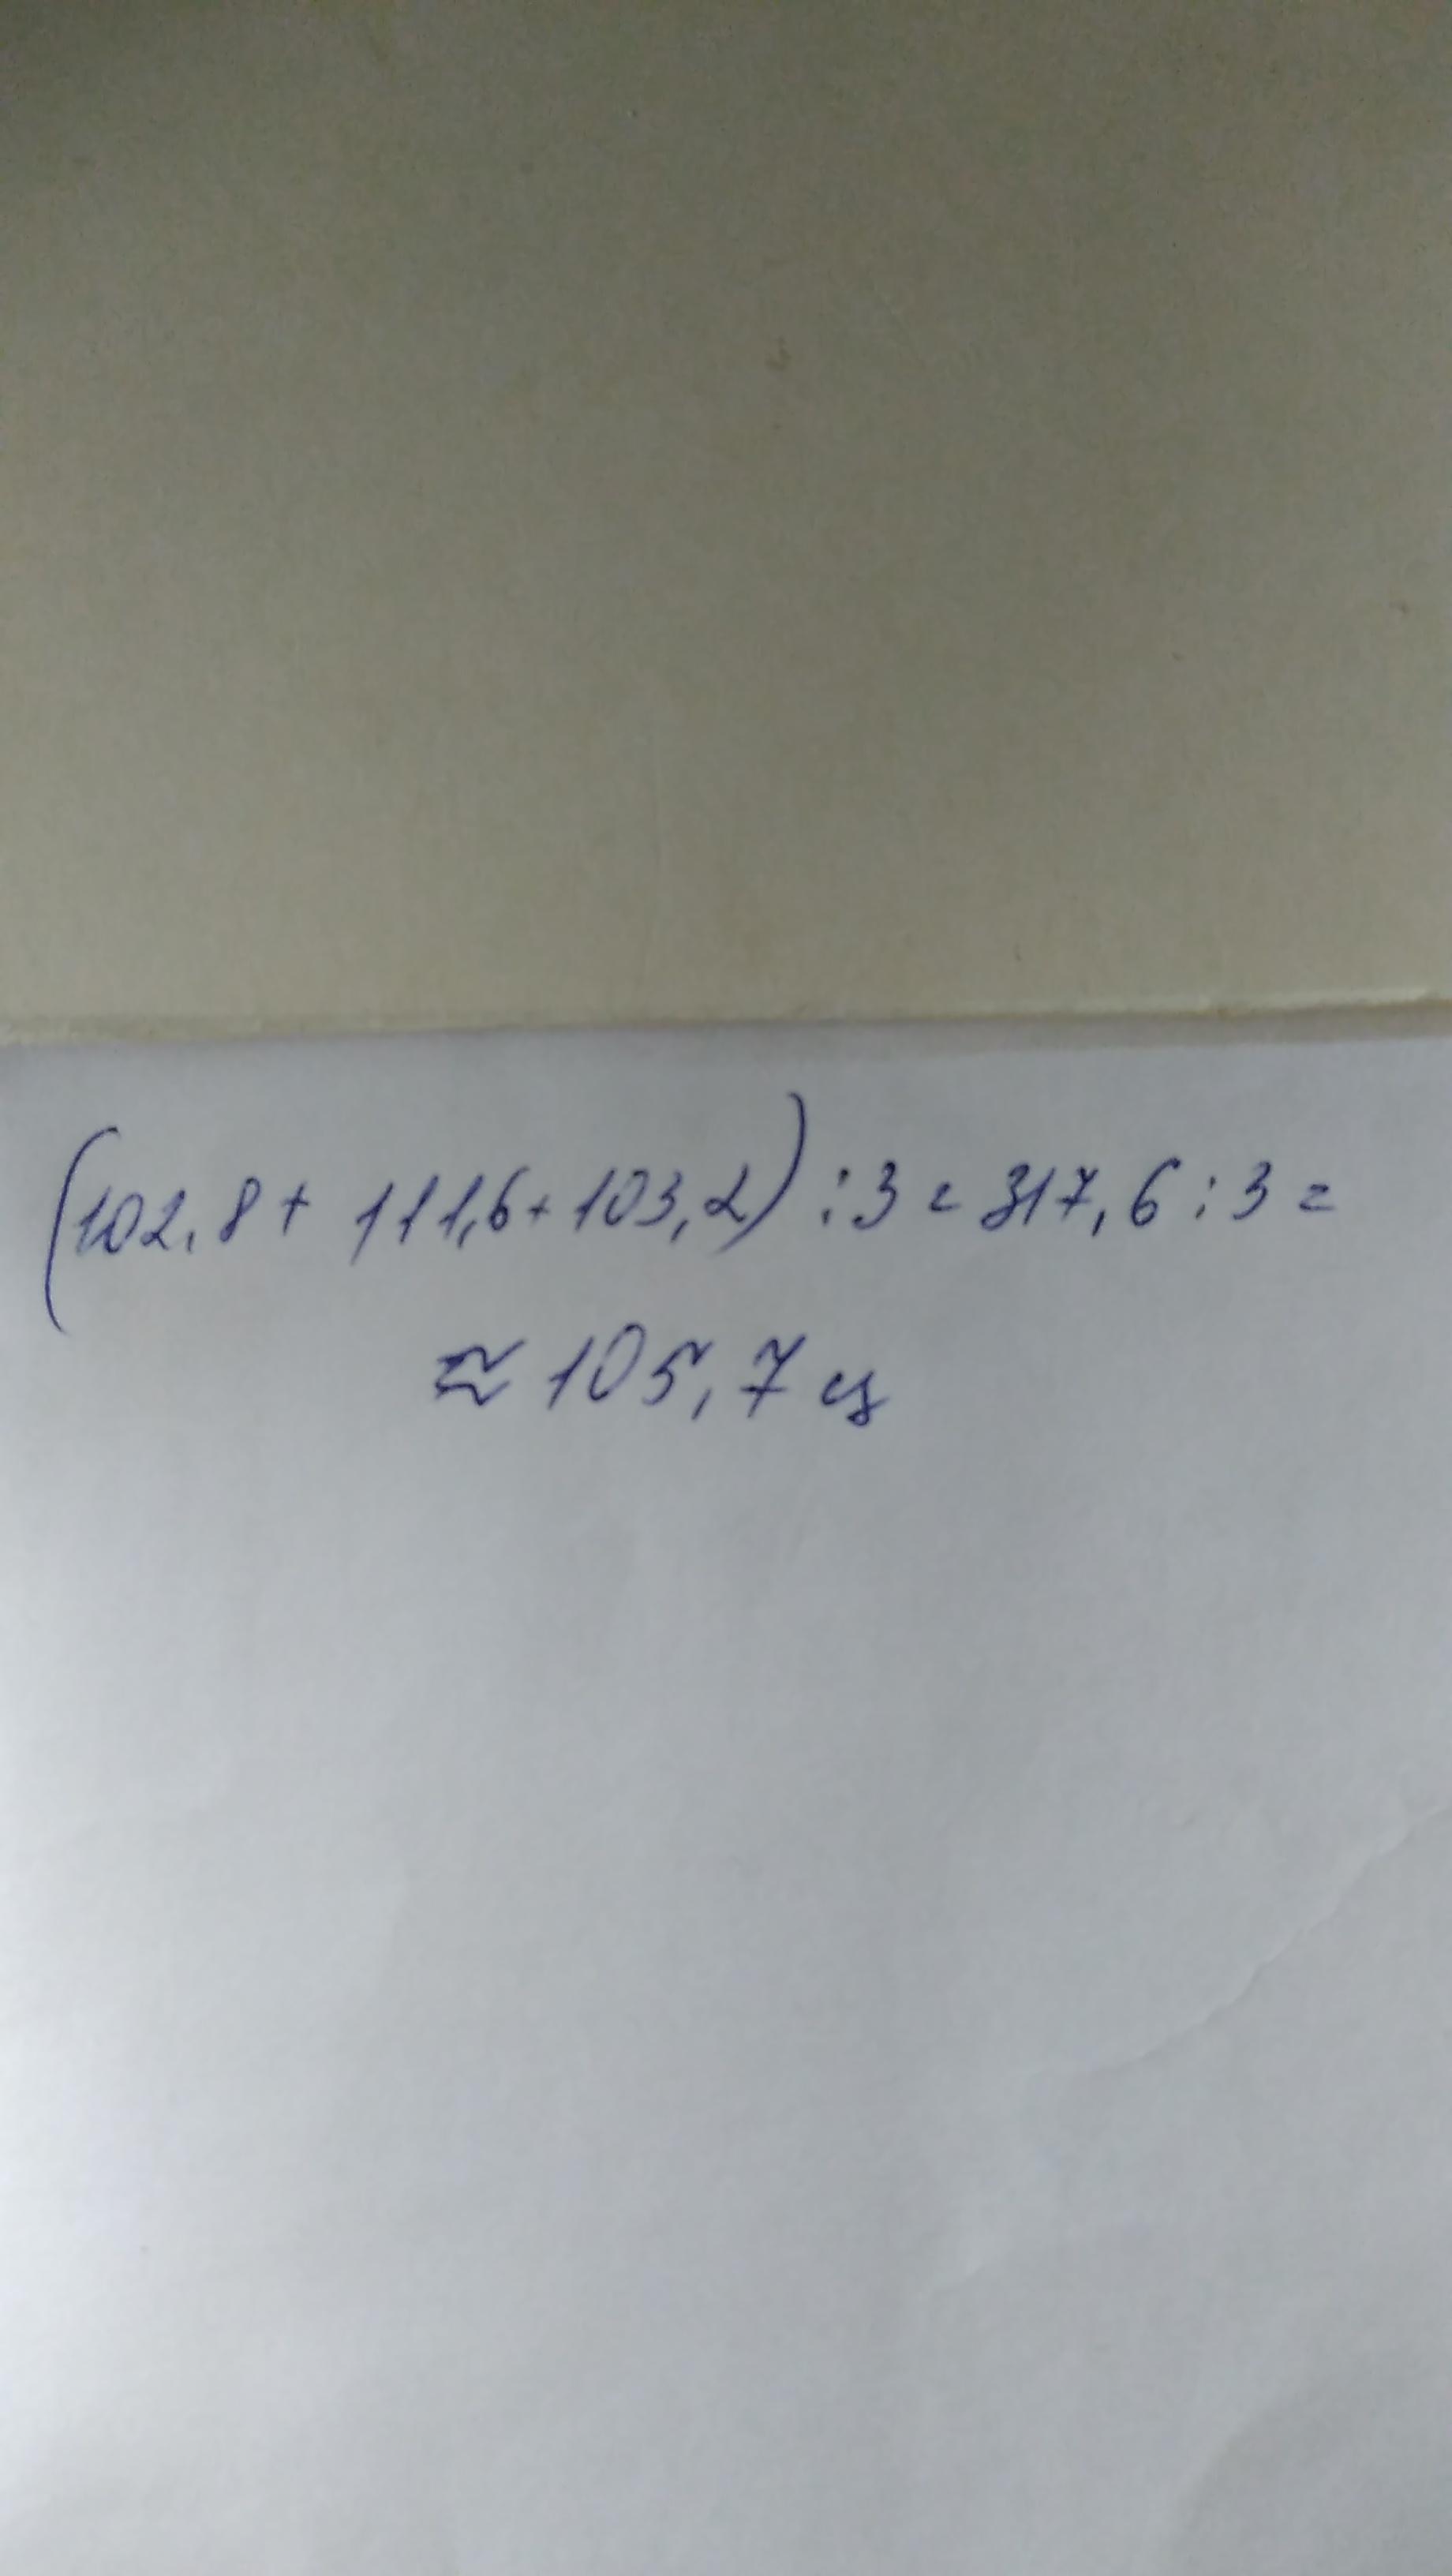 (102,8 + 111,6 + 103,2) : 3 = 317,6 : 3 =
≈ 105,7 ц